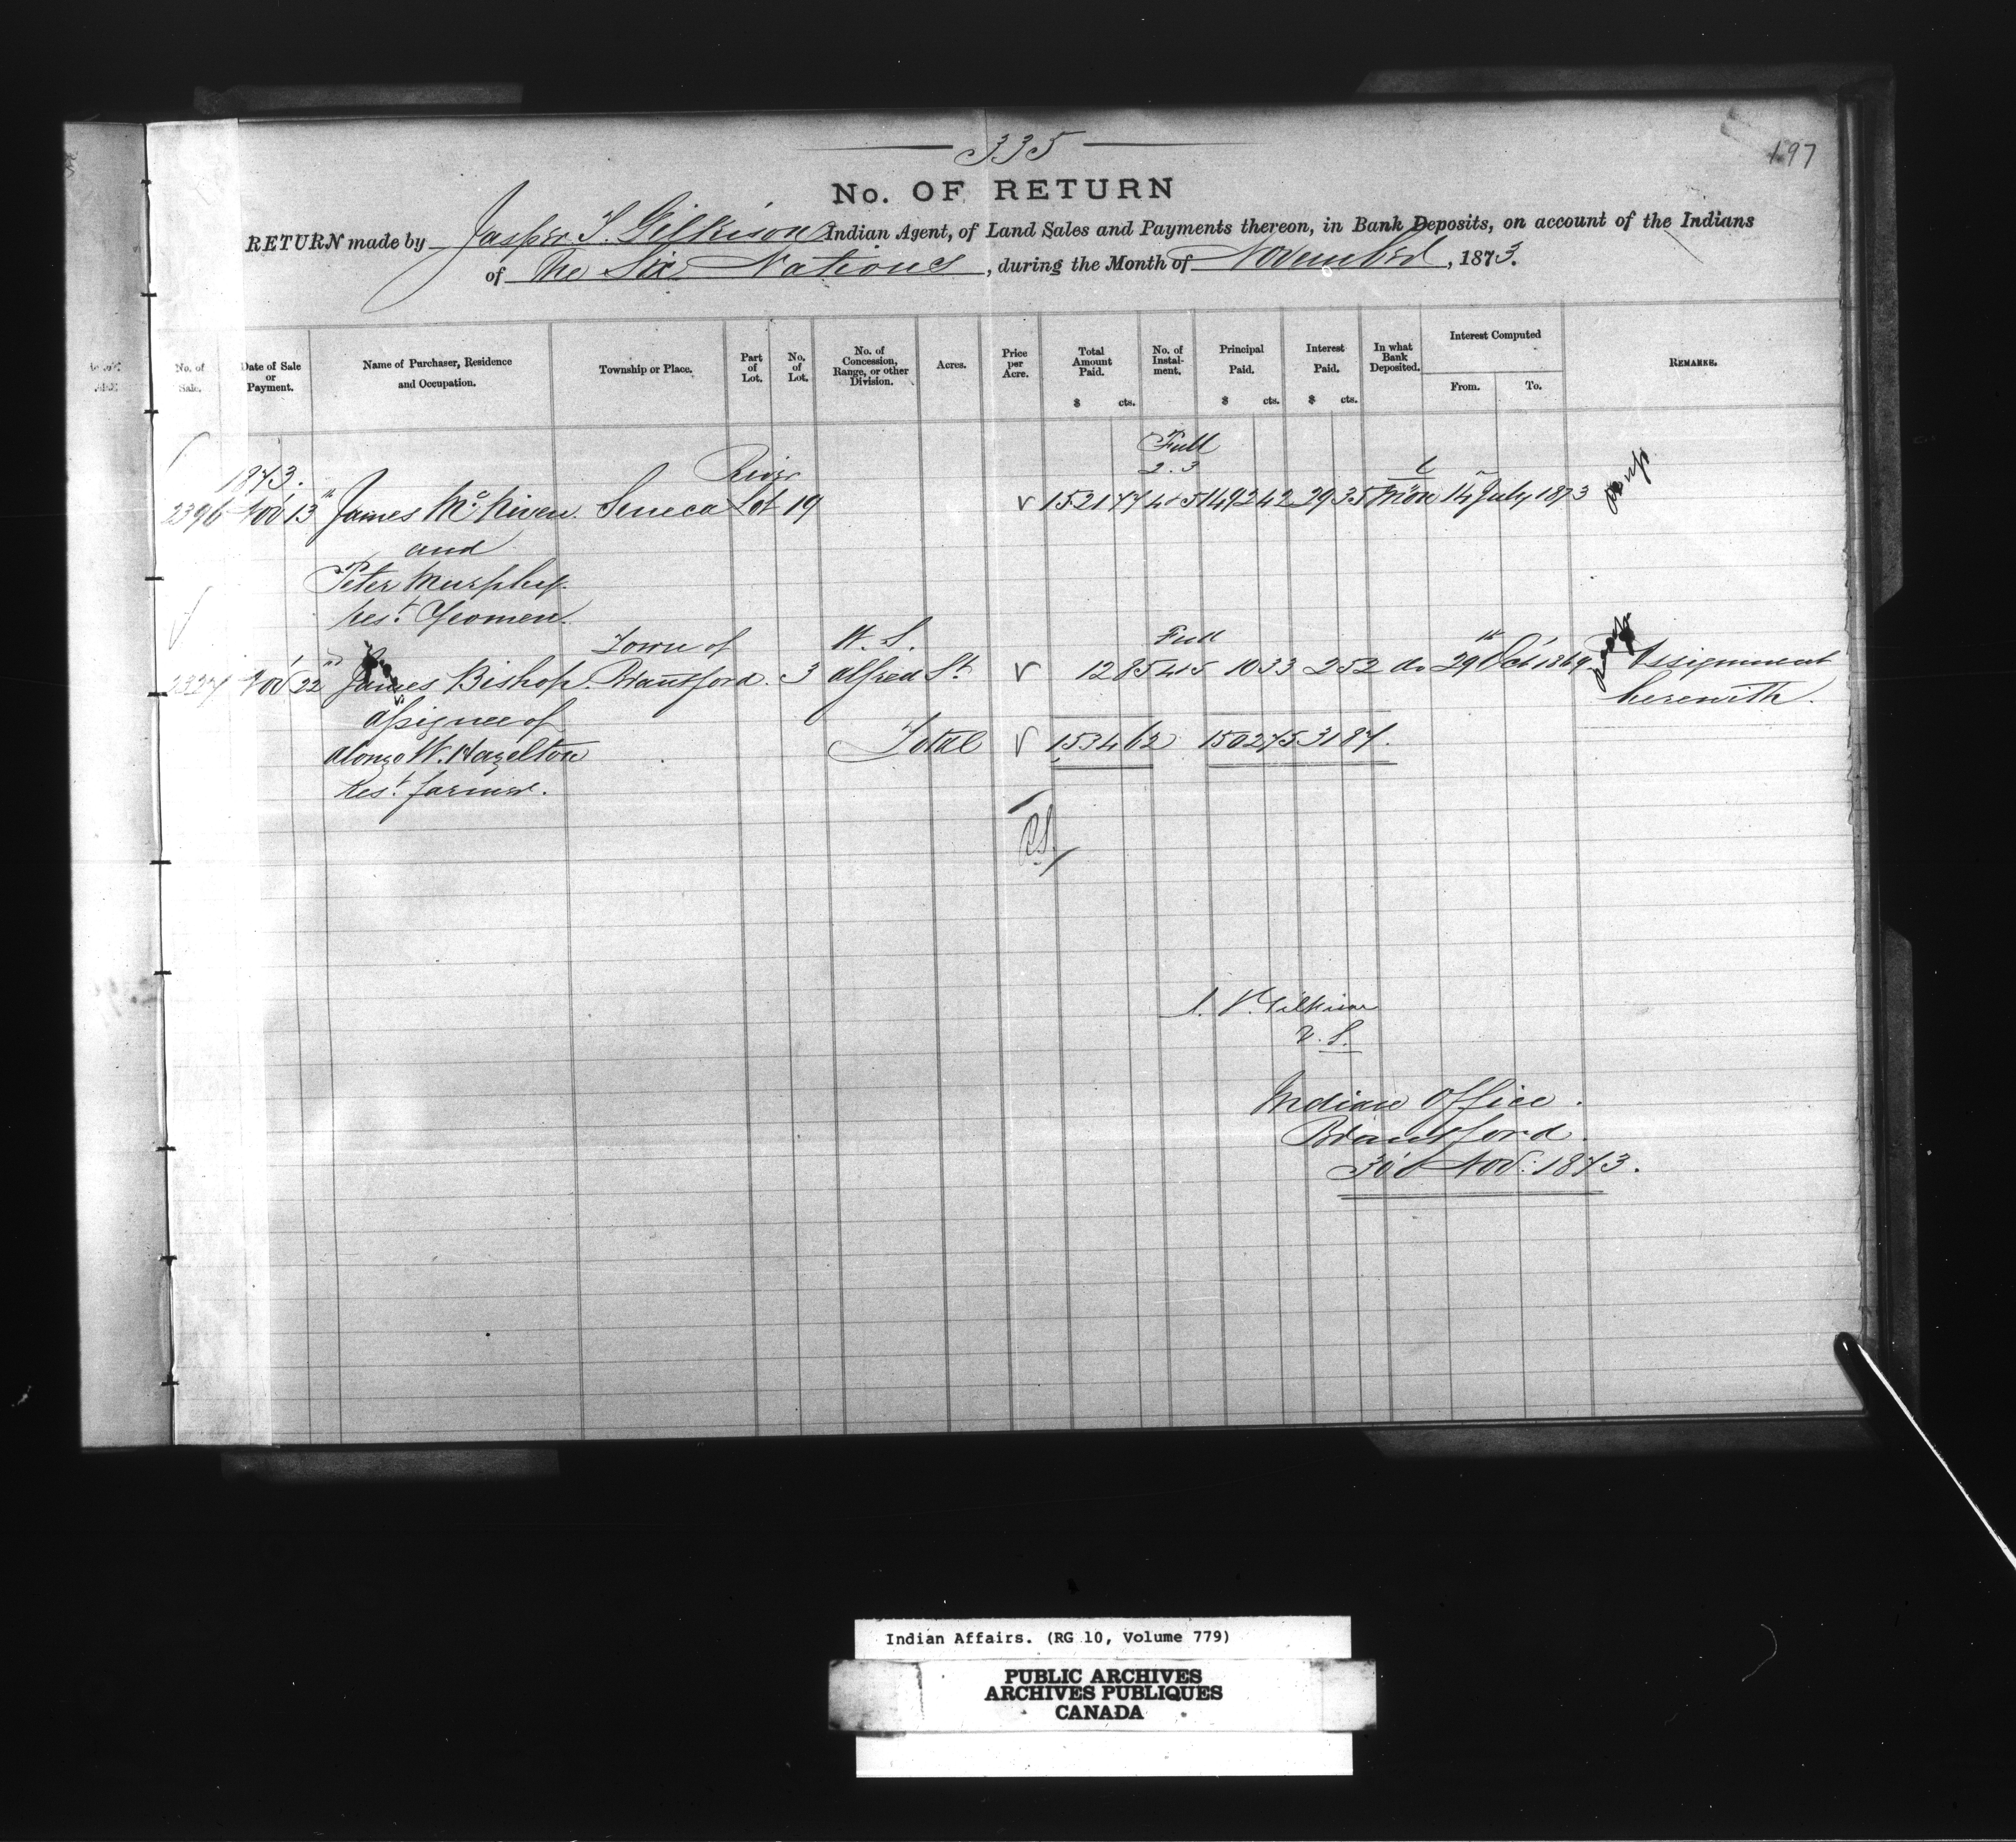 335
197
No. OF RETURN
RETURN made by Jasper T. Gilkison Indian Agent, of Land Sales and Payments thereon, in Bank Deposits, on account of the Indians
of The Six Nations, during the Month of November, 1873.
No. of Sale. Date of Sale or Payment. Name of Purchaser, Residence and Occupation. Township or Place. Part of Lot. No. of Lot. No. of Concession, Range, or other Division. Acres. Price per Acre. Total Amount Paid. $ cts. No. of Instalment. Principal Paid. $ cts. Interest Paid. $ cts. In what Bank Deposited. Interest Computed From. To. REMARKS.
Full
1873. River 2. 3
2396 Nov 13th James McNiven Seneca Lot 19 1521 77 4 & 5 1492 42 29 35 Mon 14 July 1873
and
Peter Murphy
Rest. Yeomen.
Town of W. S. Full
2327 Nov 22nd James Bishop Brantford. 3 Alfred St. 12 85 4 & 5 10 33 2 52 do 29th Oct 1869 Assignment
assignee of herewith.
Alonzo W. Hazelton Total 1534 62 1502 75 31 87.
Rest. farmer.
J. T. Gilkison
V. S.
Indian Office.
Brantford.
30th Nov: 1873.
Indian Affairs. (RG 10, Volume 779)
PUBLIC ARCHIVES
ARCHIVES PUBLIQUES
CANADA